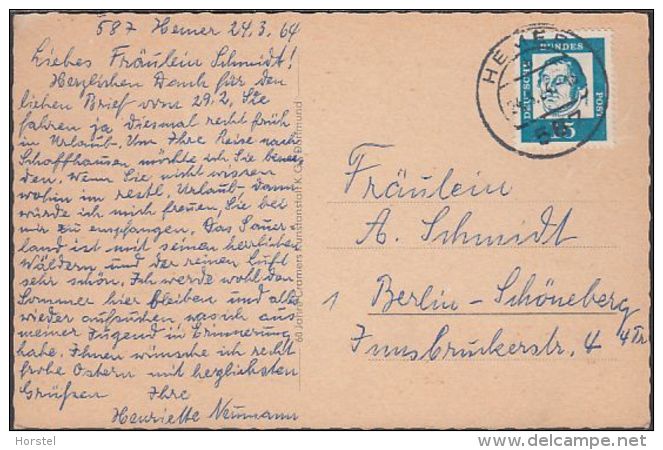 587 Hemer 24.3.64
Liebes Fräulein Schmidt!
Herzlichen Dank für den
lieben Brief vom 29.2. Sie
fahren ja diesmal recht früh
in Urlaub. Um Ihre Reise nach
Schaffhausen möchte ich Sie benei-
den. Wenn Sie nicht wissen
wohin im restl. Urlaub - dann
würde ich mich freuen, Sie bei
mir zu empfangen. Das Sauer-
land ist mit seinen herrlichen
Wäldern und der reinen Luft
sehr schön. Ich werde wohl den
Sommer hier bleiben und alles
wieder aufsuchen was ich aus
meiner Jugend in Erinnerung
habe. Ihnen wünsche ich recht
frohe Ostern mit herzlichsten
Grüßen Ihre
Henriette Neumann
60 Jahre Cramers Kunstanstalt K.G., Dortmund
HEMER
587
DEUTSCHE BUNDES POST
15
Fräulein
A. Schmidt
1 Berlin-Schöneberg
Innsbruckerstr. 4 4Tr
Horstel
www.delcampe.net